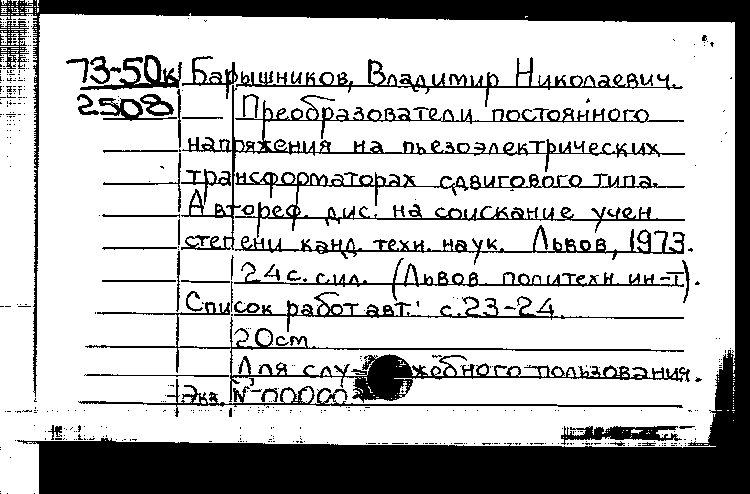 73-50к Барышников, Владимир Николаевич.
2508 Преобразователи постоянного
напряжения на пьезоэлектрических
трансформаторах сдвигового типа.
Автореф. дис. на соискание учен.
степени канд. техн. наук. Львов, 1973.
24 с. с ил. (Львов. политехн. ин-т).
Список работ авт.: с. 23-24.
20 см.
Для служебного пользования.
Экз. № 00000